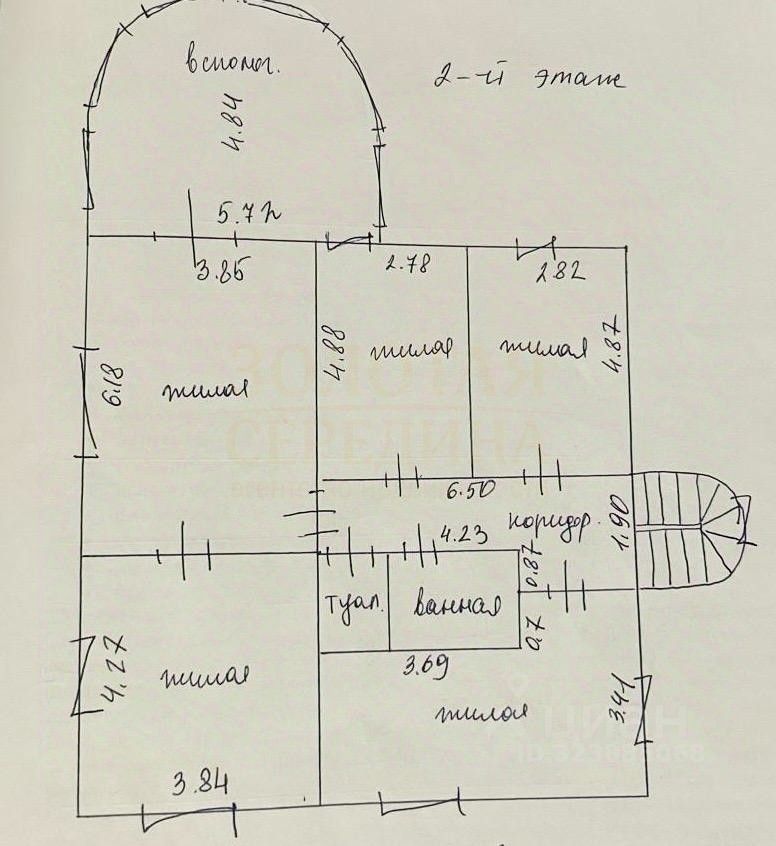 вспомог.
2-й этаж
4.84
5.72
3.85
2.78
2.82
4.88
жилая
жилая
4.87
6.18
жилая
ЗОЛОТАЯ
СЕРЕДИНА
6.50
коридор.
1.90
4.23
0.87
туал.
ванная
0.7
3.69
4.27
жилая
жилая
3.41
ЦИАН
3.84